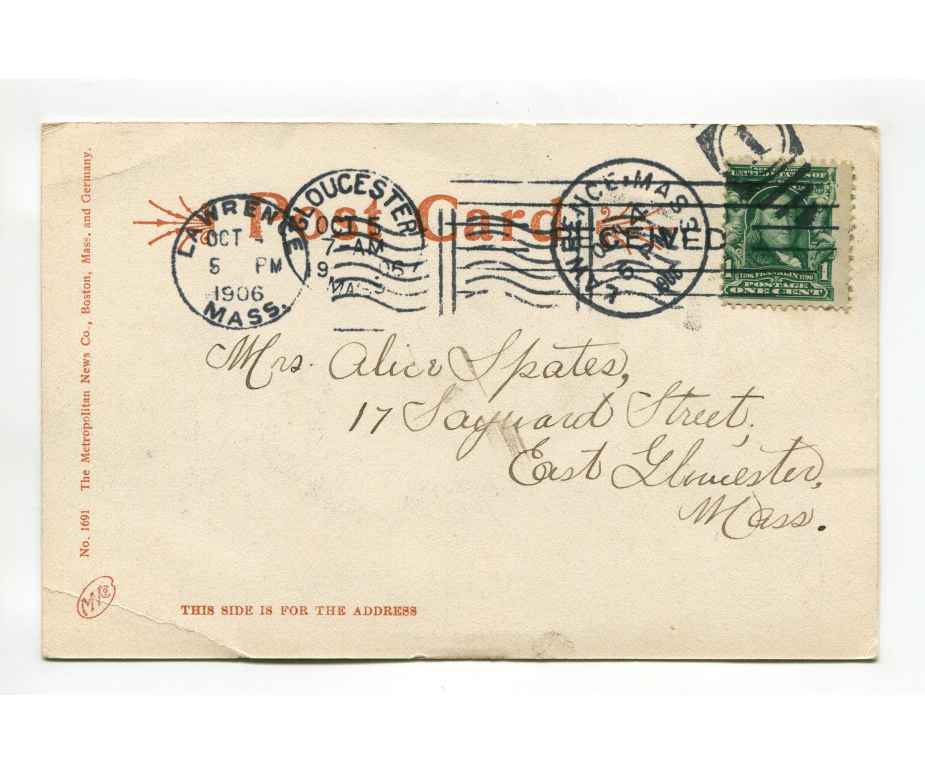 Post Card
LAWRENCE
OCT 4
5 PM
1906
MASS.
GLOUCESTER
OCT 5
7-AM
MASS
LAWRENCE MASS
1906
1
UNITED STATES OF
FRANKLIN
1 1
POSTAGE
ONE CENT
Mrs. Alice Spates,
17 Sayward Street,
East Gloucester,
Mass.
No. 1691 The Metropolitan News Co., Boston, Mass. and Germany.
THIS SIDE IS FOR THE ADDRESS